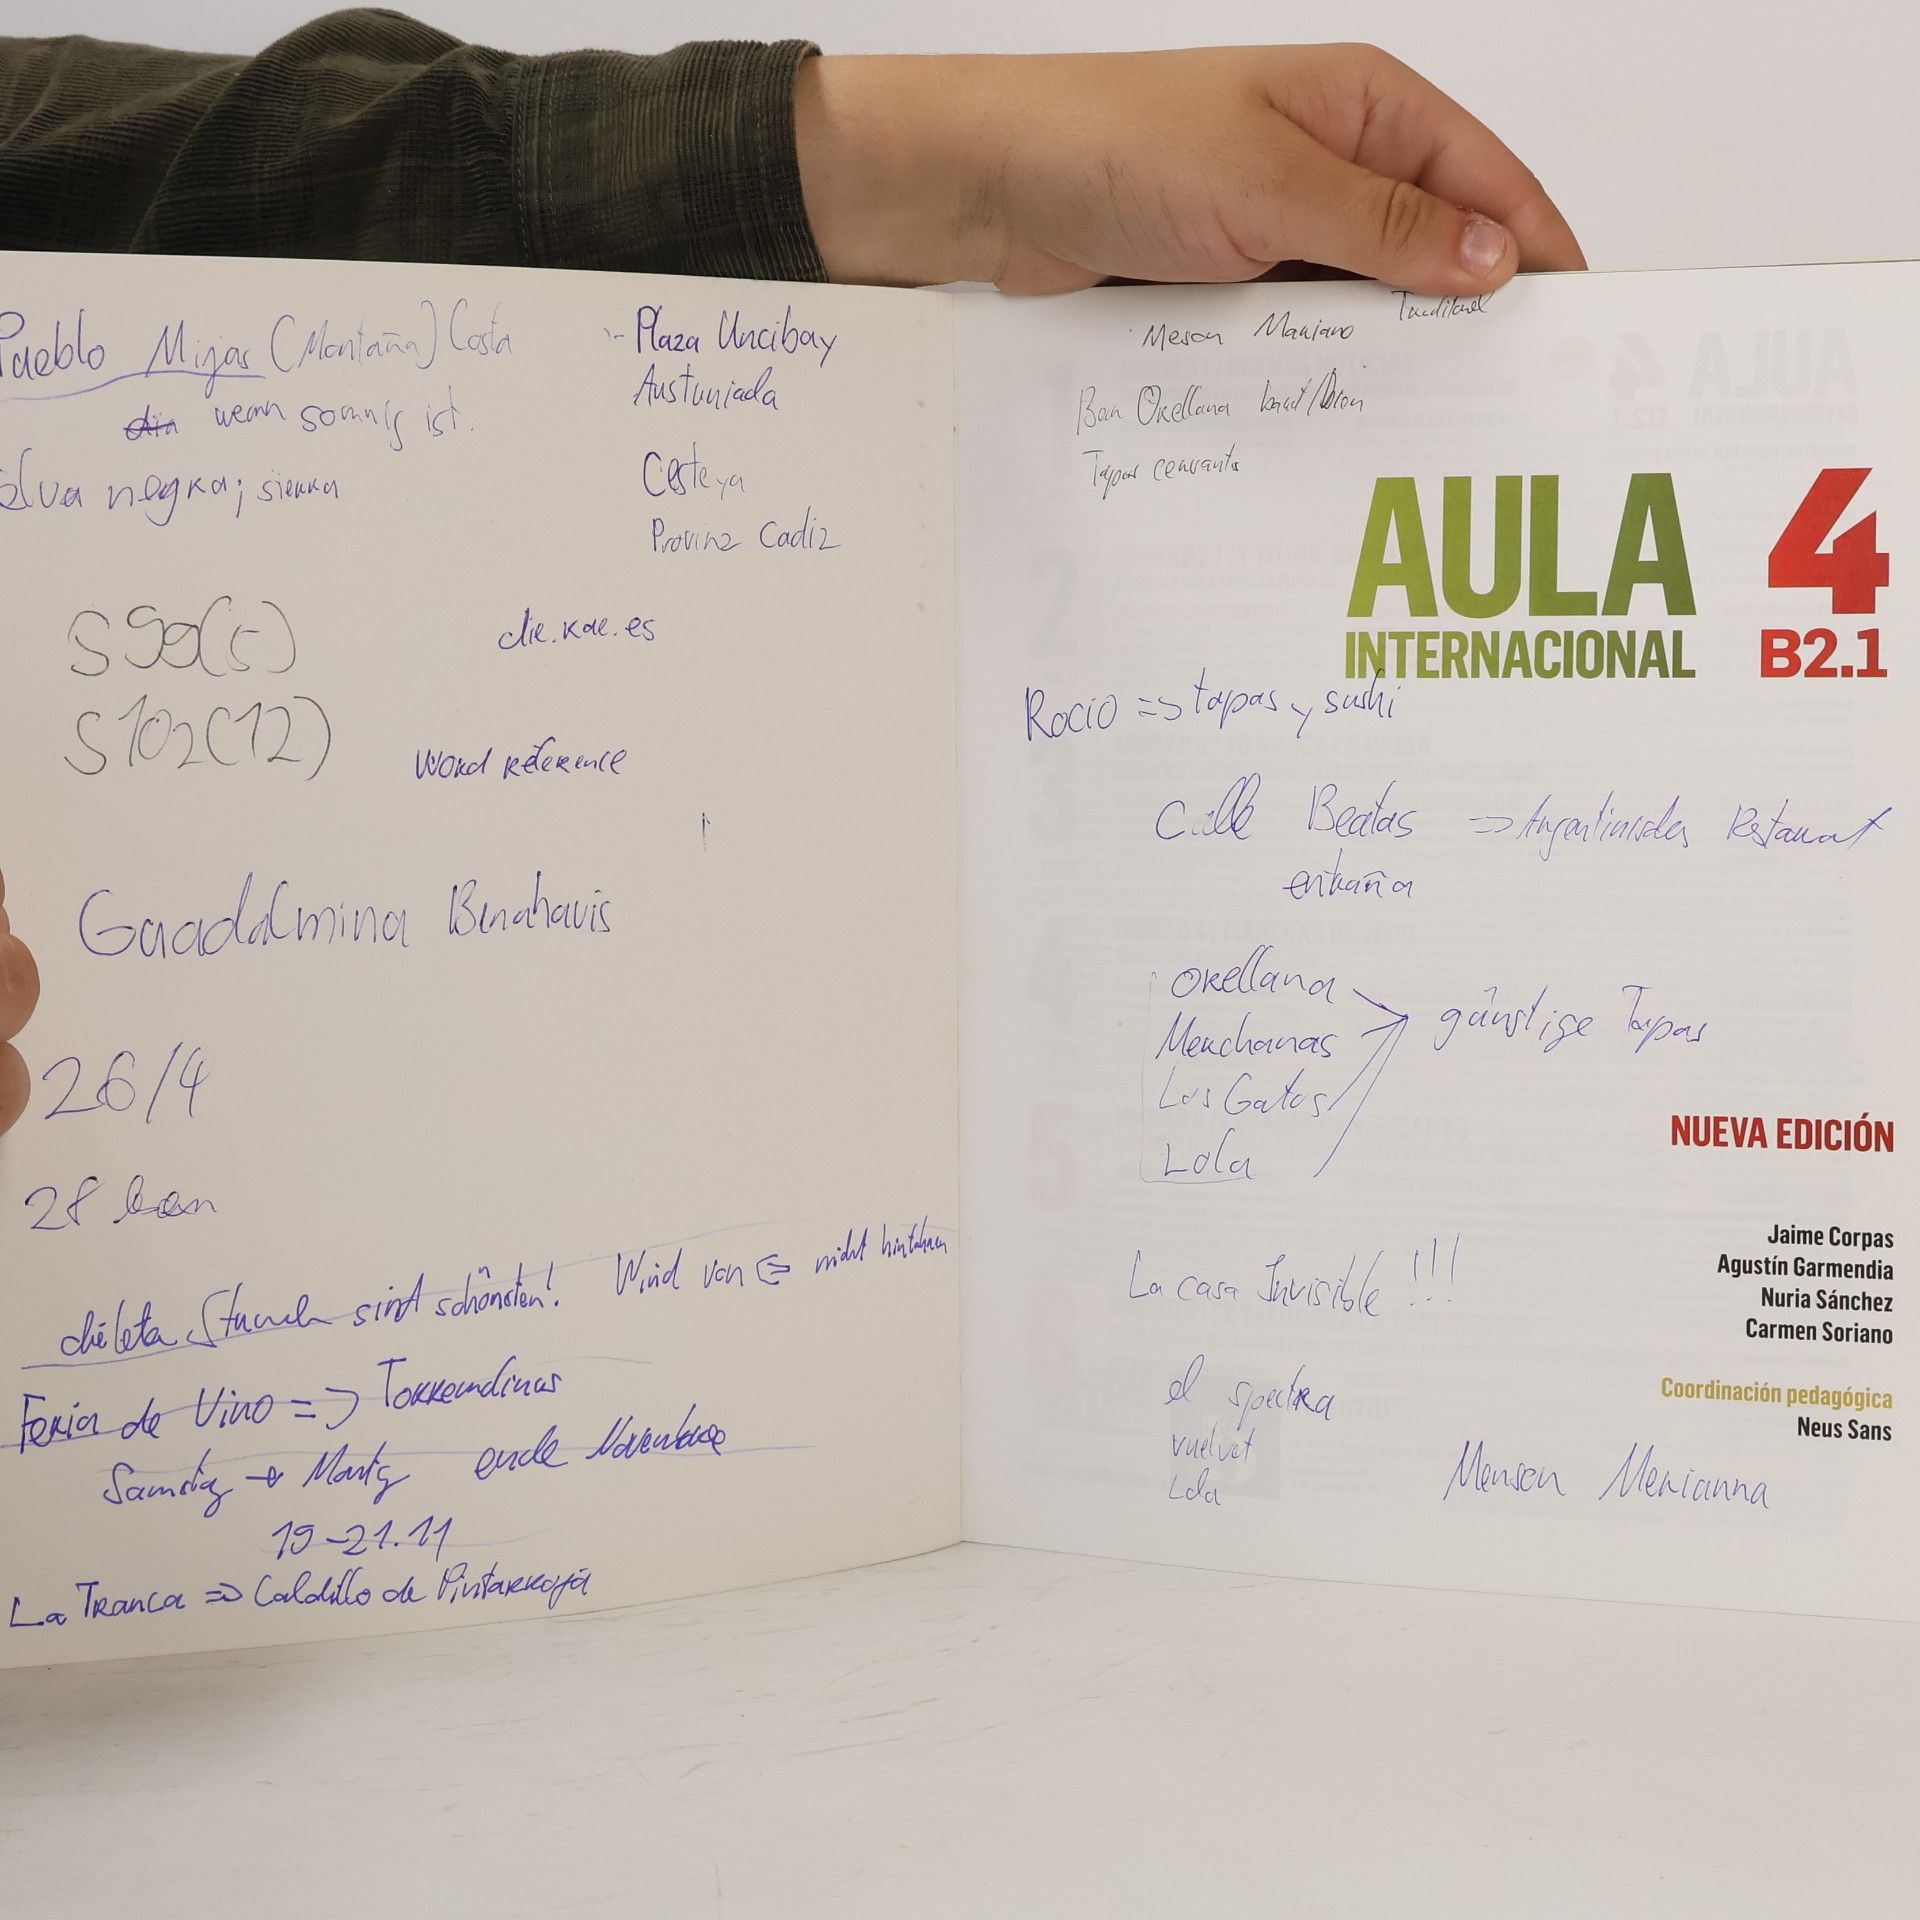 Pueblo Mijas (Montaña) Costa
wenn sonnig ist.
negra; sierra
S 99(5)
S 102(12)
Plaza Uncibay
Austuriada
Provinz Cadiz
die.rae.es
Word reference
Guadalmina Benahavis
26/4
28
sind schönsten! Wind von nicht
Feria de Vino =>
Samstag → ende November
19-21.11
La Tranca => Caldillo de Pintarroja
Meson Mariano
Bar Orellana
Tapas
AULA 4
INTERNACIONAL B2.1
Rocio => tapas y sushi
Calle Beatas => Argentinisches Restaurat
entraña
Orellana
Merchanas
Los Gatos
Lola
günstige Tapas
NUEVA EDICIÓN
Jaime Corpas
Agustín Garmendia
Nuria Sánchez
Carmen Soriano
La casa Invisible !!!
Coordinación pedagógica
Neus Sans
el
Lola
Menson Merianna